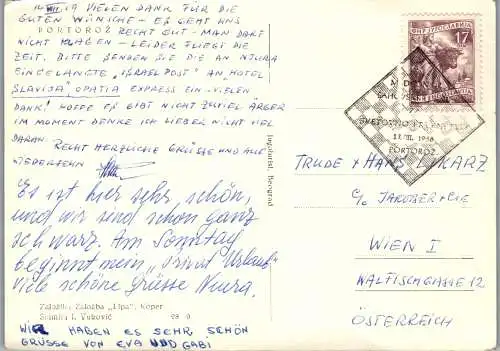 VIELEN DANK FÜR DIE
GUTEN WÜNSCHE - ES GEHT UNS
PORTOROŽ
RECHT GUT - MAN DARF
NICHT KLAGEN - LEIDER FLIEGT DIE
ZEIT. BITTE SENDEN SIE DIE AN NJURA
EINGELANGTE "ISRAEL POST" AN HOTEL
SLAVIJA, OPATIA EXPRESS EIN - VIELEN
DANK! HOFFE ES GIBT NICHT ZUVIEL ÄRGER
IM MOMENT DENKE ICH LIEBER NICHT VIEL
DARAN.
RECHT HERZLICHE GRÜSSE UND AUF
WIEDERSEHN
Es ist hier sehr schön,
und wir send schon ganz
schwarz. Am Sonntag
beginnt mein "Privat Urlaub"
viele schöne Grüsse Niura.
Založila: Založba "Lipa", Koper
Snimio: I. Vuković
WIR HABEN ES SEHR SCHÖN
GRÜSSE VON EVA UND GABI
Jugoturist, Beograd
FNR JUGOSLAVIJA
17
PORTOROŽ
TRUDE + HANS
C/o JAKOBER + CIE
WIEN I
WALFISCHGASSE 12
ÖSTERREICH